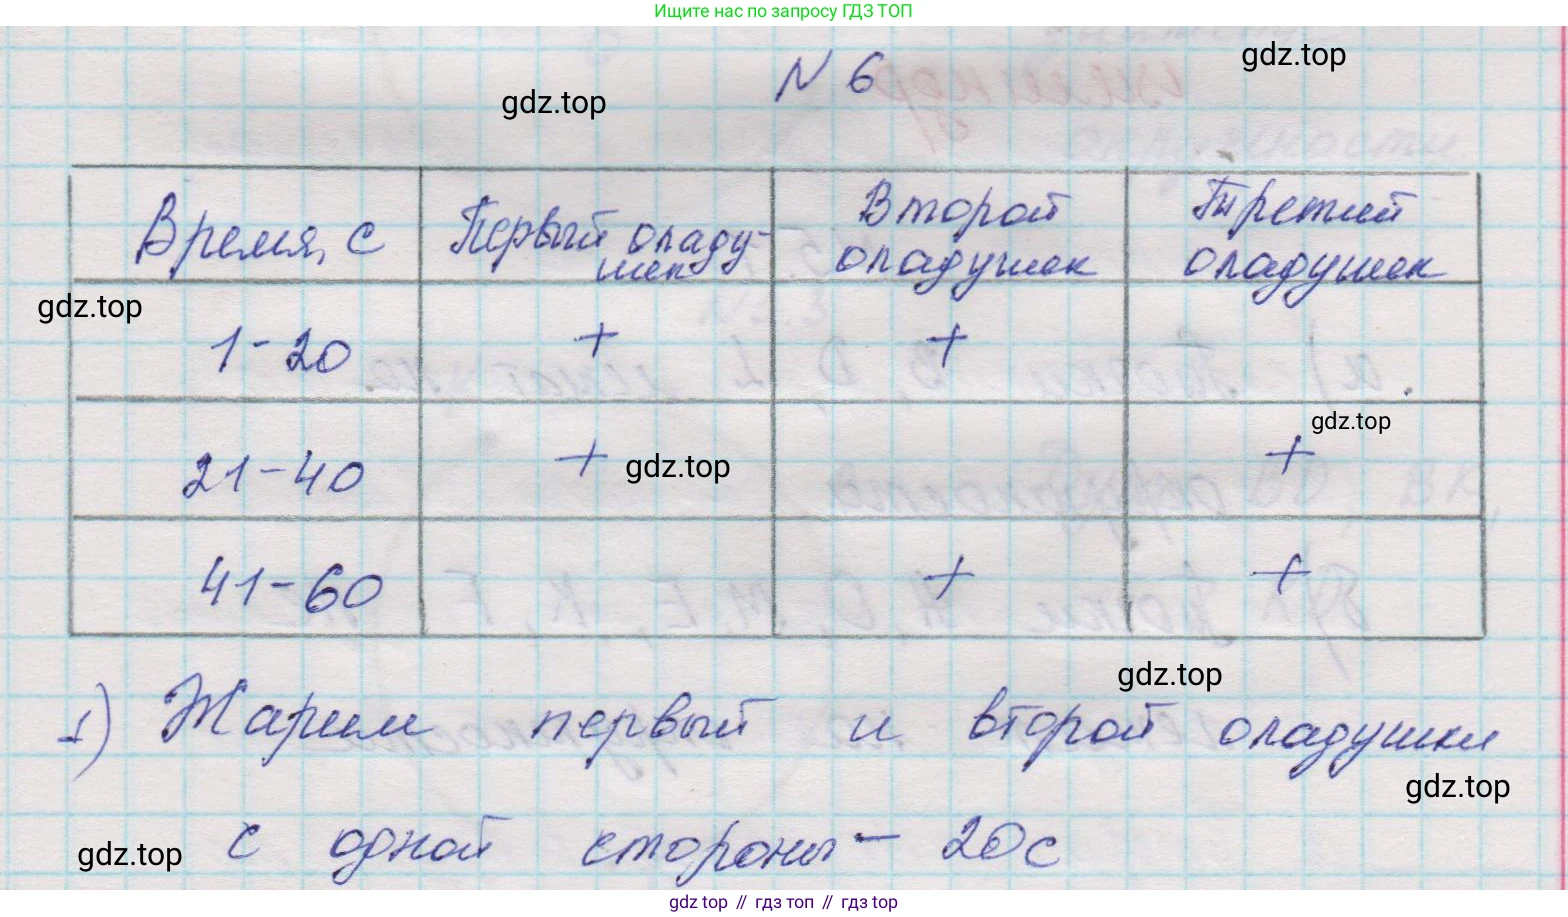 Ищите нас по запросу ГДЗ ТОП
N 6
gdz.top
gdz.top
Время, с Первый оладушек Второй оладушек Третий оладушек
gdz.top
1-20 + +
gdz.top
21-40 + +
gdz.top
41-60 + +
gdz.top
1) Жарим первый и второй оладушки
gdz.top
с одной стороны - 20с
gdz.top
gdz top // гдз топ // гдз top